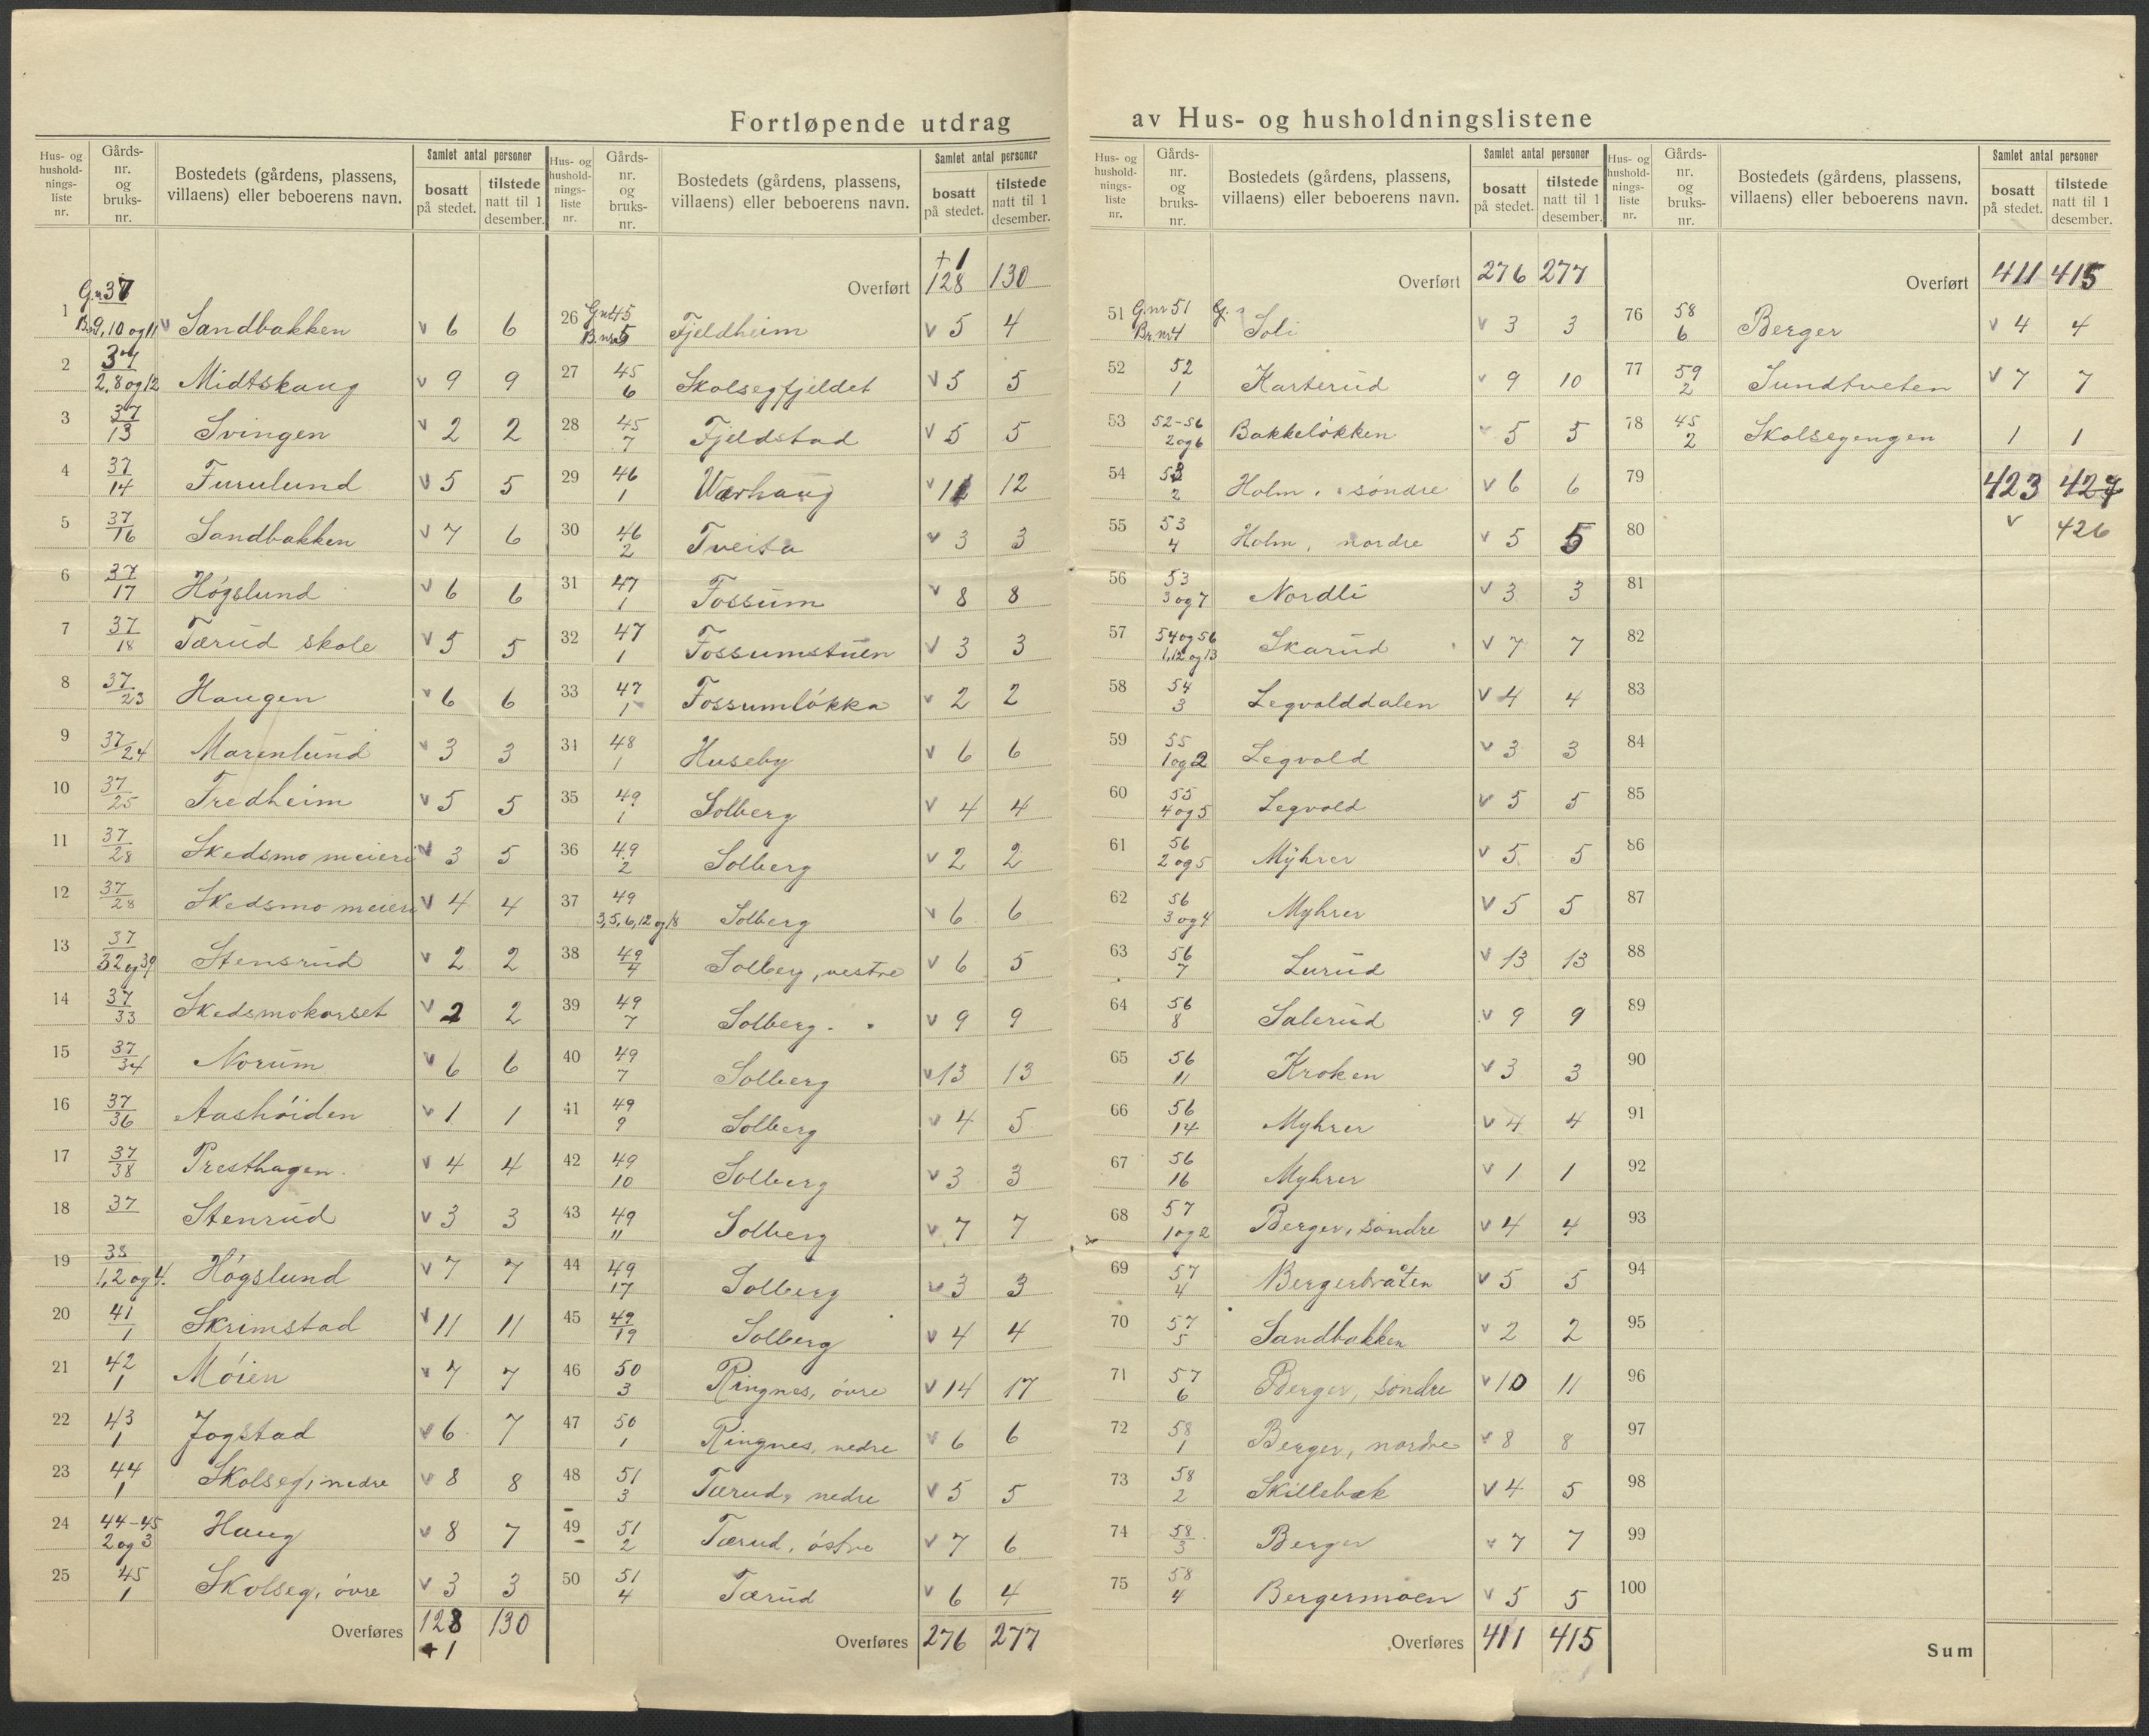 Fortløpende utdrag av Hus- og husholdningslistene
Hus- og hushold-nings-liste nr. Gårds-nr. og bruks-nr. Bostedets (gårdens, plassens, villaens) eller beboerens navn. Samlet antal personer bosatt på stedet. tilstede natt til 1 desember.
1 G.n 37 B.n 9, 10 og 11 v Sandbakken v 6 6
2 37 2, 8 og 12 Midtskaug v 9 9
3 37 13 Svingen v 2 2
4 37 14 Furulund v 5 5
5 37 16 Sandbakken v 7 6
6 37 17 Högslund v 6 6
7 37 18 Tærud skole v 5 5
8 37 23 Haugen v 6 6
9 37 24 Marenlund v 3 3
10 37 25 Fredheim v 5 5
11 37 28 Skedsmo meieri v 3 5
12 37 28 Skedsmo meieri v 4 4
13 37 32 og 39 Stensrud v 2 2
14 37 33 Skedsmokorset v 2 2
15 37 34 Norum v 6 6
16 37 36 Aashöiden v 1 1
17 37 38 Presthagen. v 4 4
18 37 Stenrud v 3 3
19 38 1, 2 og 4. Högslund v 7 7
20 41 1 Skrimstad v 11 11
21 42 1 Möien v 7 7
22 43 1 Jogstad v 6 7
23 44 1 Skolseg, nedre v 8 8
24 44-45 2 og 3 Haug v 8 7
25 45 1 Skolseg, övre v 3 3
Overføres 128 130
+1
Hus- og hushold-nings-liste nr. Gårds-nr. og bruks-nr. Bostedets (gårdens, plassens, villaens) eller beboerens navn. Samlet antal personer bosatt på stedet. tilstede natt til 1 desember.
+1
Overført 128 130
26 G.nr 45 B.nr 5 Fjeldheim v 5 4
27 45 6 Skolsegfjeldet v 5 5
28 45 7 Fjeldstad v 5 5
29 46 1 Warhaug v 12 12
30 46 2 Tveita v 3 3
31 47 1 Fossum v 8 8
32 47 1 Fossumstuen v 3 3
33 47 1 Fossumlökka v 2 2
34 48 1 Huseby v 6 6
35 49 1 Solberg v 4 4
36 49 2 Solberg v 2 2
37 49 3, 5, 6, 12 og 18 Solberg v 6 6
38 49 4 Solberg, vestre v 6 5
39 49 7 Solberg v 9 9
40 49 7 Solberg v 13 13
41 49 9 Solberg v 4 5
42 49 10 Solberg v 3 3
43 49 11 Solberg v 7 7
44 49 17 Solberg v 3 3
45 49 19 Solberg v 4 4
46 50 3 Ringnes, övre v 14 17
47 50 1 Ringnes, nedre v 6 6
48 51 3 Tærud, nedre v 5 5
49 51 2 Tærud, östre v 7 6
50 51 4 Tærud v 6 4
Overføres 276 277
Hus- og hushold-nings-liste nr. Gårds-nr. og bruks-nr. Bostedets (gårdens, plassens, villaens) eller beboerens navn. Samlet antal personer bosatt på stedet. tilstede natt til 1 desember.
Overført 276 277
51 G.nr 51 Br.nr 4 G. Soli v 3 3
52 52 1 Karterud v 9 10
53 52-56 2 og 6 Bakkelökken v 5 5
54 53 2 Holm, söndre v 6 6
55 53 4 Holm, nordre v 5 5
56 53 3 og 7 Nordli v 3 3
57 54 og 56 1, 12 og 13 Skarud v 7 7
58 54 3 Legvolddalen v 4 4
59 55 1 og 2 Legvold v 3 3
60 55 4 og 5 Legvold v 5 5
61 56 2 og 5 Myhrer v 5 5
62 56 3 og 4 Myhrer v 5 5
63 56 7 Lurud v 13 13
64 56 8 Salerud v 9 9
65 56 11 Kroken v 3 3
66 56 14 Myhrer v 4 4
67 56 16 Myhrer v 1 1
68 57 1 og 2 Berger, söndre v 4 4
69 57 4 Bergerbråten v 5 5
70 57 5 Sandbakken v 2 2
71 57 6 Berger, söndre v 10 11
72 58 1 Berger, nordre v 8 8
73 58 2 Skillebæk v 4 5
74 58 3 Berger v 7 7
75 58 4 Bergermoen v 5 5
Overføres 411 415
Hus- og hushold-nings-liste nr. Gårds-nr. og bruks-nr. Bostedets (gårdens, plassens, villaens) eller beboerens navn. Samlet antal personer bosatt på stedet. tilstede natt til 1 desember.
Overført 411 415
76 58 6 Berger v 4 4
77 59 2 Sundtveten v 7 7
78 45 2 Skolsegengen 1 1
79 423 427
80 v 426
81
82
83
84
85
86
87
88
89
90
91
92
93
94
95
96
97
98
99
100
Sum